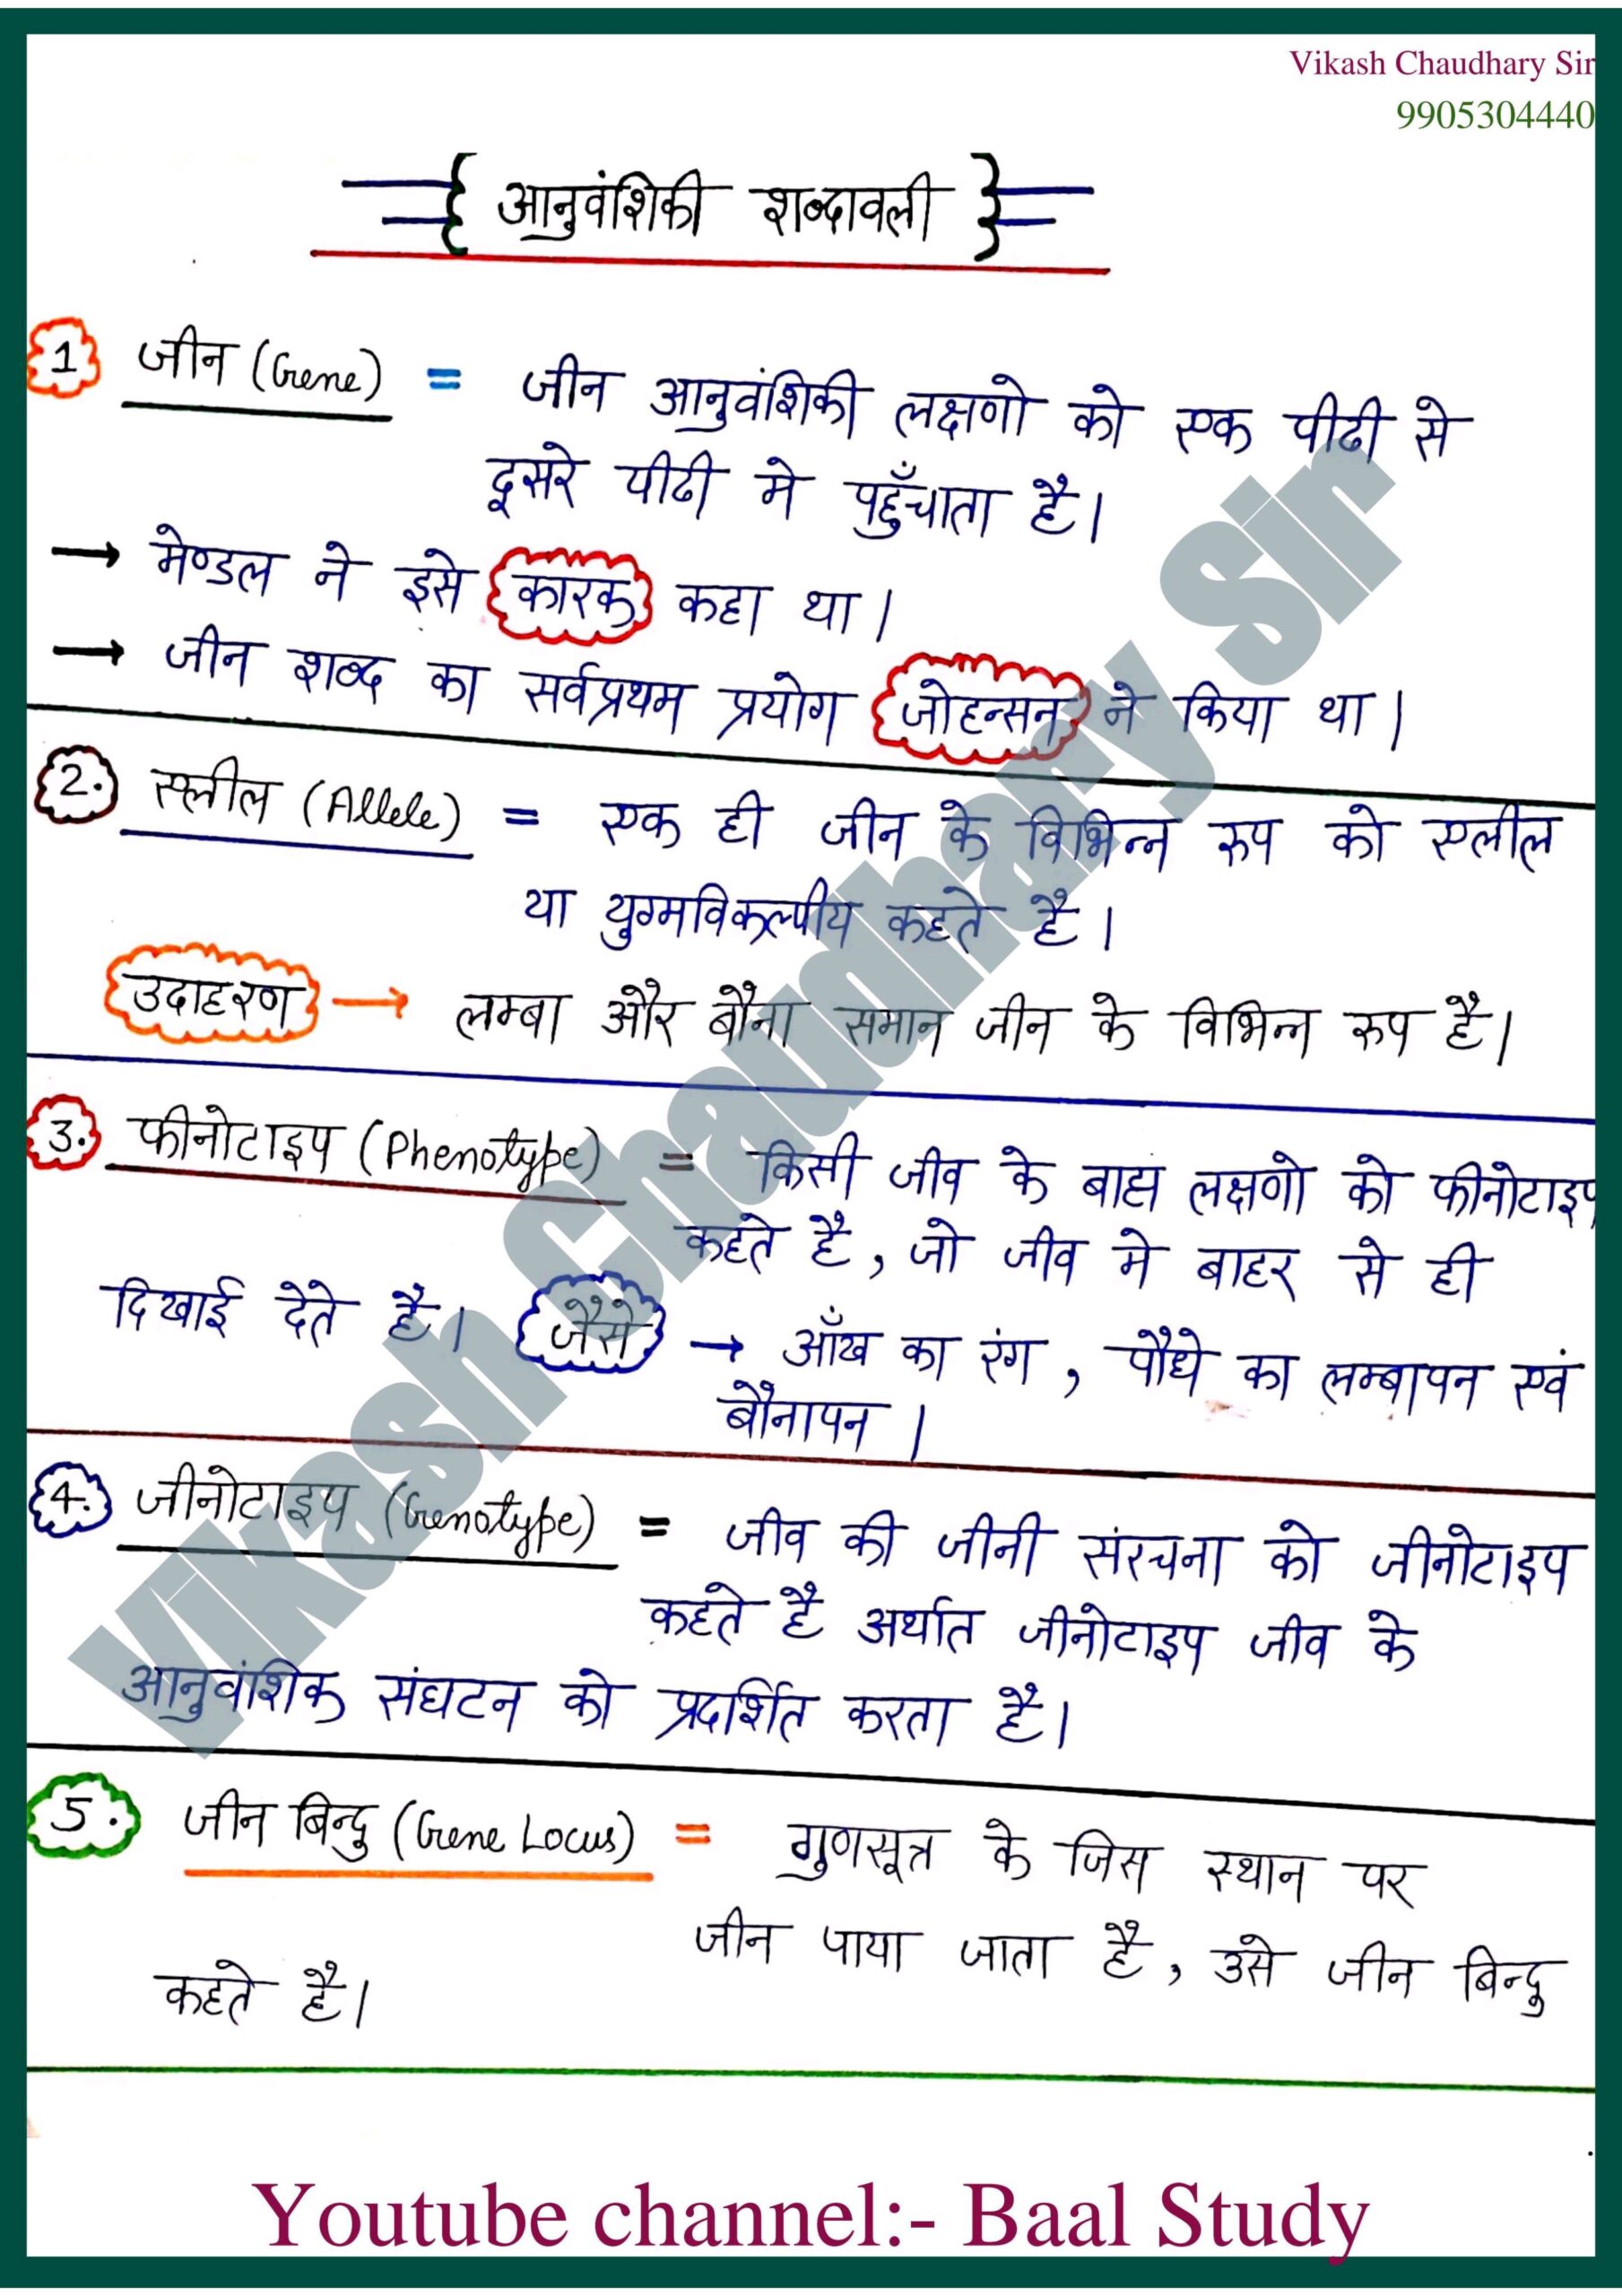 Vikash Chaudhary Sir
9905304440
{ आनुवंशिकी शब्दावली }
1 जीन (Gene) = जीन आनुवंशिकी लक्षणो को एक पीढी से
दूसरे पीढी मे पहुँचाता है।
→ मेण्डल ने इसे कारक कहा था।
→ जीन शब्द का सर्वप्रथम प्रयोग जोहन्सन ने किया था।
2. एलील (Allele) = एक ही जीन के विभिन्न रुप को एलील
या युग्मविकल्पीय कहते है।
उदाहरण → लम्बा और बौना समान जीन के विभिन्न रुप है।
3. फीनोटाइप (Phenotype) = किसी जीव के बाह्य लक्षणो को फीनोटाइप
कहते है, जो जीव मे बाहर से ही
दिखाई देते है। जैसे → आँख का रंग, पौधे का लम्बापन एवं
बौनापन।
4. जीनोटाइप (Genotype) = जीव की जीनी संरचना को जीनोटाइप
कहते है अर्थात जीनोटाइप जीव के
आनुवंशिक संघटन को प्रदर्शित करता है।
5. जीन बिन्दु (Gene Locus) = गुणसूत्र के जिस स्थान पर
जीन पाया जाता है, उसे जीन बिन्दु
कहते है।
Vikash Chaudhary Sir
Youtube channel:- Baal Study